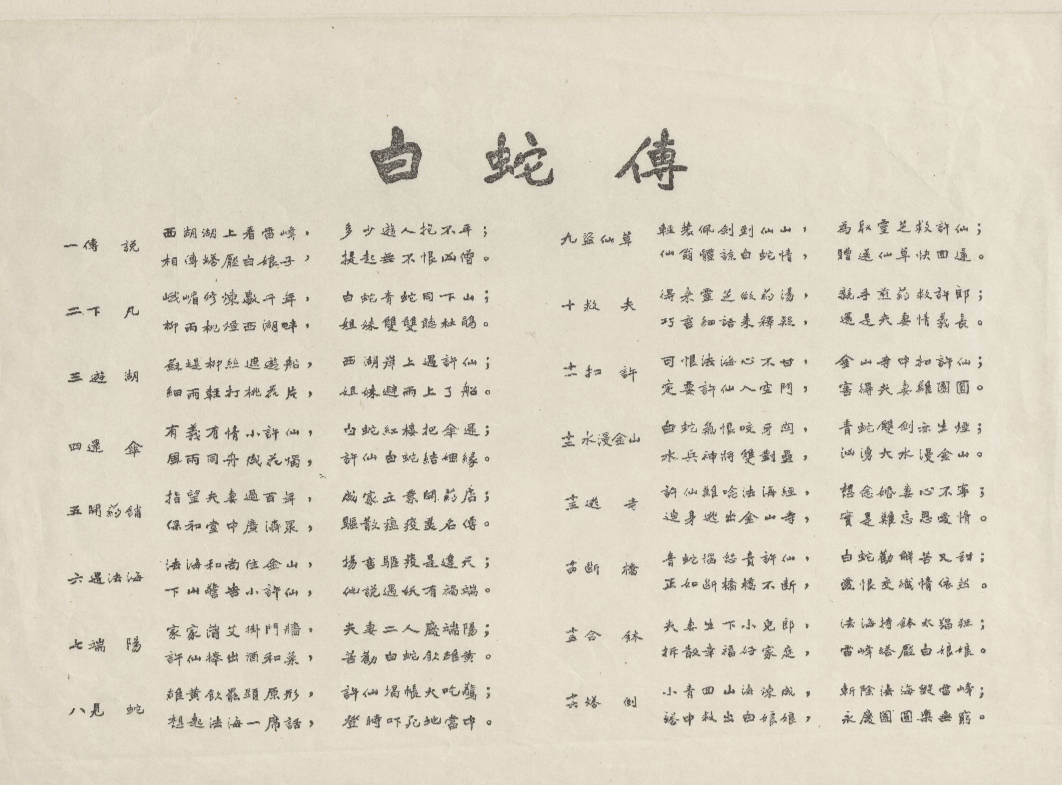 白蛇傳
一傳說
西湖湖上看雷峰，多少遊人抱不平；
相傳塔壓白娘子，提起無不恨凶僧。
二下凡
峨嵋修煉數千年，白蛇青蛇同下山；
柳雨桃煙西湖畔，姐妹雙雙聽杜鵑。
三遊湖
蘇堤柳絲遮遊船，西湖岸上遇許仙；
細雨輕打桃花片，姐妹避雨上了船。
四還傘
有義有情小許仙，白蛇紅樓把傘還；
風雨同舟成花燭，許仙白蛇結姻緣。
五開葯舖
指望夫妻過百年，成家立業開葯店；
保和堂中廣濟眾，驅散瘟疫美名傳。
六遇法海
法海和尚住金山，揚言驅疫是違天；
下山警告小許仙，他說遇妖有禍端。
七端陽
家家蒲艾掛門牆，夫妻二人慶端陽；
許仙捧出酒和菜，苦勸白蛇飲雄黃。
八見蛇
雄黃飲罷顯原形，許仙揭帳大吃驚；
想起法海一席話，登時吓死地當中。
九盜仙草
輕裝佩劍到仙山，為取靈芝救許仙；
仙翁體諒白蛇情，贈送仙草快回還。
十救夫
得來靈芝做葯湯，親手煎葯救許郎；
巧言細語來釋疑，還是夫妻情義長。
十一扣許
可恨法海心不甘，金山寺中扣許仙；
定要許仙入空門，害得夫妻難團圓。
十二水漫金山
白蛇氣恨咬牙關，青蛇雙劍亦生煙；
水兵神將雙對壘，洶湧大水漫金山。
十三逃寺
許仙難唸法海經，想念嬌妻心不寧；
迫身逃出金山寺，實是難忘恩愛情。
十四斷橋
青蛇惱怒責許仙，白蛇勸解苦又甜；
正如斷橋橋不斷，愛恨交熾情依然。
十五合鉢
夫妻生下小兒郎，法海持鉢太猖狂；
拆散幸福好家庭，雷峰塔壓白娘娘。
十六塔倒
小青四山海煉成，斬除法海毀雷峰；
塔中救出白娘娘，永慶團圓樂無窮。